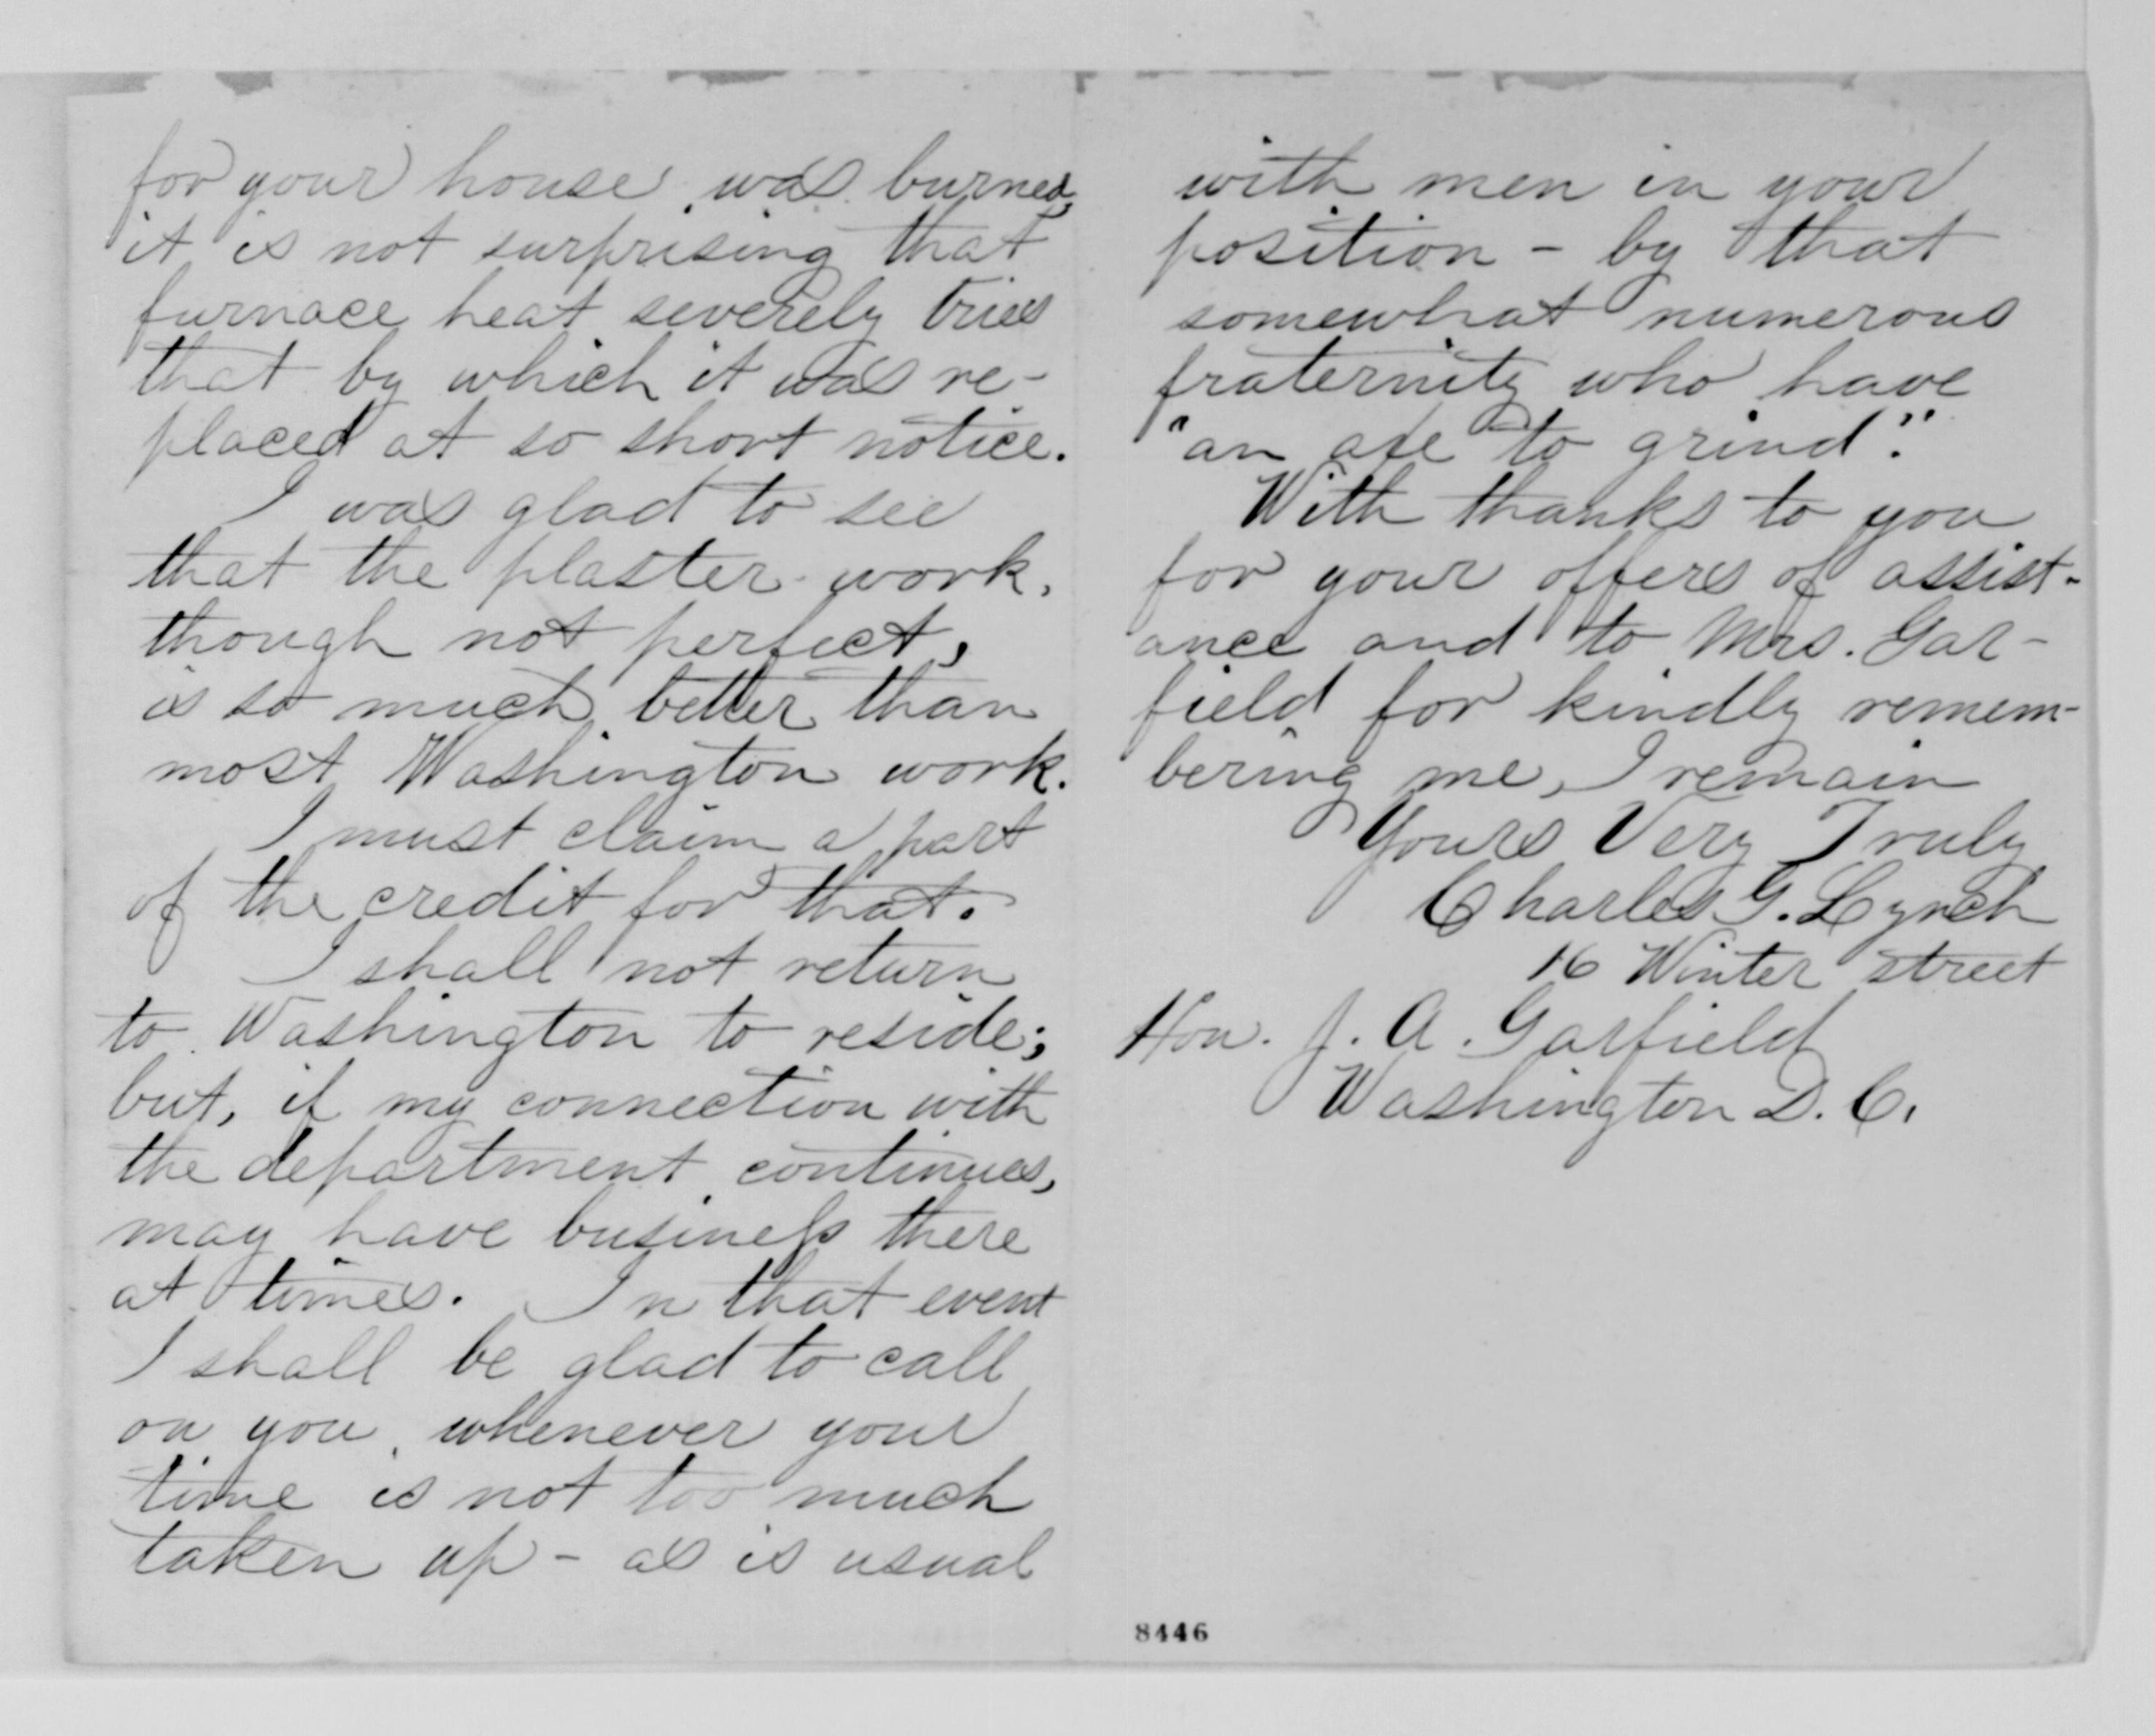 for your house, was burned,
it is not surprising that
furnace heat severely tries
that by which it was re-
placed at so short notice.
I was glad to see
that the plaster work,
though not perfect,
is so much better than
most Washington work.
I must claim a part
of the credit for that.
I shall not return
to Washington to reside;
but, if my connection with
the department continues,
may have business there
at times. In that event
I shall be glad to call
on you, whenever your
time is not too much
taken up - as is usual
with men in your
position - by that
somewhat numerous
fraternity who have
"an axe to grind".
With thanks to you
for your offers of assist-
ance and to Mrs. Gar-
field for kindly remem-
bering me, I remain
Yours Very Truly
Charles G. Lynch
16 Winter street
Hon. J. A. Garfield
Washington D. C.
8446